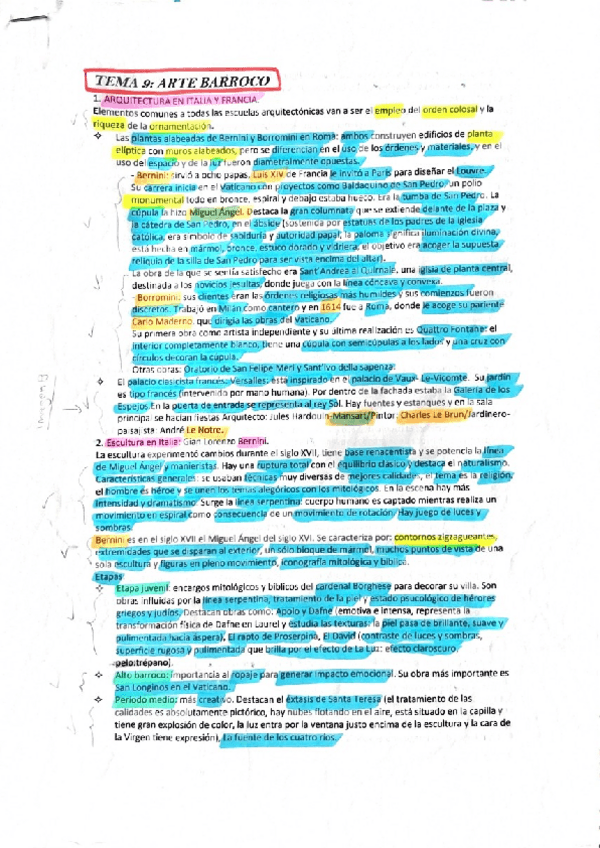 TEMA 9: ARTE BARROCO
1. ARQUITECTURA EN ITALIA Y FRANCIA.
Elementos comunes a todas las escuelas arquitectónicas van a ser el empleo del orden colosal y la
riqueza de la ornamentación.
Las plantas alabeadas de Bernini y Borromini en Roma: ambos construyen edificios de planta
elíptica con muros alabeados, pero se diferencian en el uso de los órdenes y materiales, y en el
uso del espacio y de la luz fueron diametralmente opuestas.
- Bernini: sirvió a ocho papas. Luis XIV de Francia le invitó a París para diseñar el Louvre.
Su carrera inicia en el Vaticano con proyectos como Baldaquino de San Pedro: un polio
monumental todo en bronce, espiral y debajo estaba hueco. Era la tumba de San Pedro. La
cúpula la hizo Miguel Ángel. Destaca la gran columnata que se extiende delante de la plaza y
la cátedra de San Pedro, en el ábside (sostenida por estatuas de los padres de la iglesia
católica, era símbolo de sabiduría y autoridad papal; la paloma significa iluminación divina,
está hecha en mármol, bronce, estuco dorado y vidriera; el objetivo era acoger la supuesta
reliquia de la silla de San Pedro para ser vista encima del altar).
La obra de la que se sentía satisfecho era Sant'Andrea al Quirnale, una iglsia de planta central,
destinada a los novicios jesuitas, donde juega con la línea cóncava y convexa.
- Borromini: sus clientes eran las órdenes religiosas más humildes y sus comienzos fueron
discretos. Trabajó en Milán como cantero y en 1614 fue a Roma, donde le acoge su pariente
Carlo Maderno, que dirigía las obras del Vaticano.
Su primera obra como artista independiente y su última realización es Quattro Fontane: el
interior completamente blanco, tiene una cúpula con semicúpulas a los lados y una cruz con
círculos decoran la cúpula.
Otras obras: Oratorio de San Felipe Meri y Sant'Ivo della sapenza.
El palacio clasicista francés: Versalles: está inspirado en el palacio de Vaux- Le-Vicomte. Su jardín
es tipo francés (intervenido por mano humana). Por dentro de la fachada estaba la Galería de los
Espejos. En la puerta de entrada se representa al rey Sol. Hay fuentes y estanques y en la sala
principal se hacían fiestas. Arquitecto: Jules Hardouin-Mansart/Pintor: Charles Le Brun/Jardinero-
paisajista: André Le Notre.
2. Escultura en Italia: Gian Lorenzo Bernini.
La escultura experimentó cambios durante el siglo XVII, tiene base renacentista y se potencia la línea
de Miguel Ángel y manieristas. Hay una ruptura total con el equilibrio clásico y destaca el naturalismo.
Características generales: se usaban técnicas muy diversas de mejores calidades, el tema es la religión,
el hombre es héroe y se unen los temas alegóricos con los mitológicos. En la escena hay más
intensidad y dramatismo. Surge la línea serpentina: cuerpo humano es captado mientras realiza un
movimiento en espiral como consecuencia de un movimiento de rotación. Hay juego de luces y
sombras.
Bernini es en el siglo XVII el Miguel Ángel del siglo XVI. Se caracteriza por: contornos zigzagueantes,
extremidades que se disparan al exterior, un sólo bloque de mármol, muchos puntos de vista de una
sola escultura y figuras en pleno movimiento, iconografía mitológica y bíblica.
Etapas
Etapa juvenil: encargos mitológicos y bíblicos del cardenal Borghese para decorar su villa. Son
obras influidas por la línea serpentina, tratamiento de la piel y estado psucológico de héroes
griegos y judíos. Destacan obras como: Apolo y Dafne (emotiva e intensa, representa la
transformación física de Dafne en Laurel y estudia las texturas: la piel pasa de brillante, suave y
pulimentada hacia áspera), El rapto de Proserpino, El David (contraste de luces y sombras,
superficie rugosa y pulimentada que brilla por el efecto de La Luz: efecto claroscuro,
pelo:trépano).
Alto barroco: importancia al ropaje para generar impacto emocional. Su obra más importante es
San Longinos en el Vaticano.
Periodo medio: más creativo. Destacan el éxtasis de Santa Teresa (el tratamiento de las
calidades es absolutamente pictórico, hay nubes flotando en el aire, está situado en la capilla y
tiene gran explosión de color, la luz entra por la ventana justo encima de la escultura y la cara de
la Virgen tiene expresión), La fuente de los cuatro ríos.